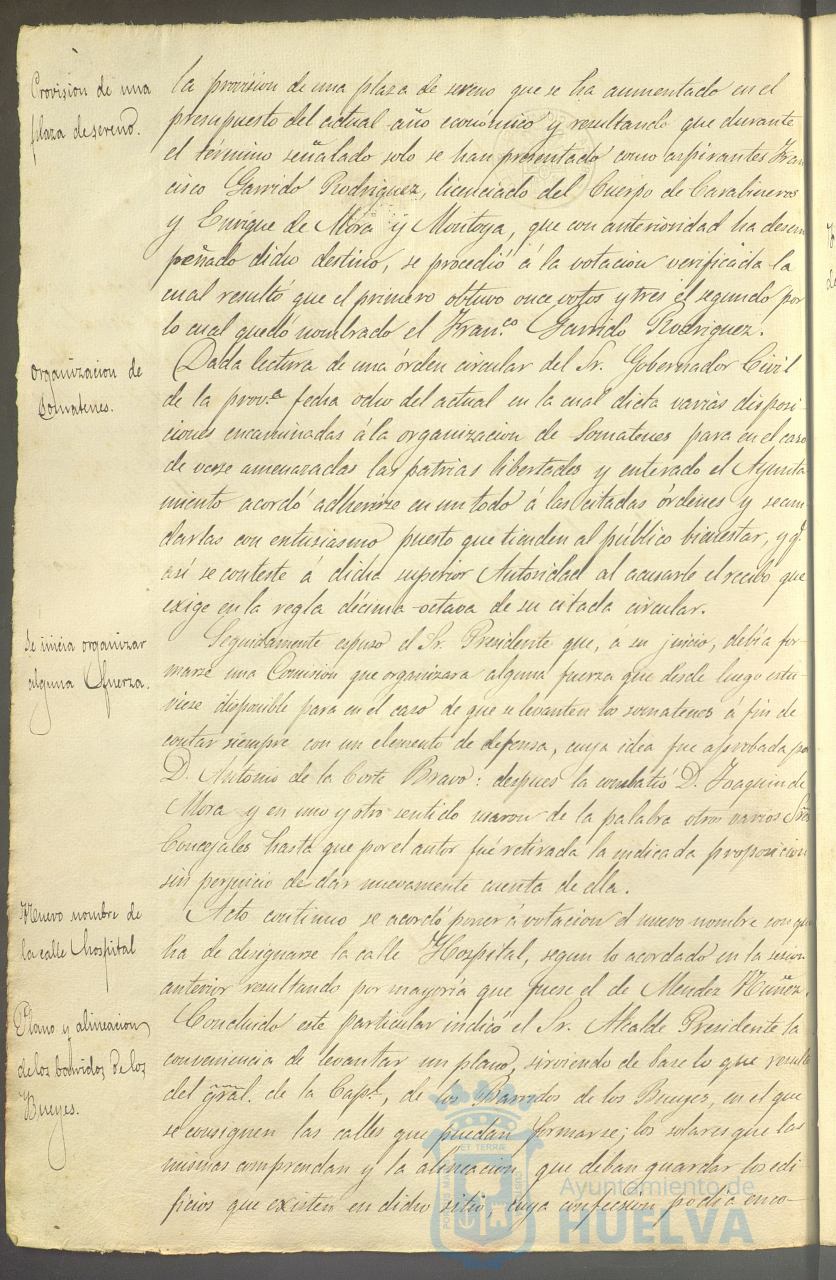 Provision de una
plaza de sereno.
la provision de una plaza de sereno que se ha aumentado en el
presupuesto del actual año económico y resultando que durante
el término señalado solo se han presentado como aspirantes Fran
cisco Garrido Rodriguez, licenciado del Cuerpo de Carabineros
y Enrique de Mora y Montoya, que con anterioridad ha desem
peñado dicho destino, se procedió á la votacion verificada la
cual resultó que el primero obtuvo once votos y tres el segundo por
lo cual quedó nombrado el Fran.co Garrido Rodriguez.
Organizacion de
Somatenes.
Dada lectura de una órden circular del Sr. Gobernador Civil
de la prov.a fecha ocho del actual en la cual dicta varias disposi
ciones encaminadas á la organizacion de Somatenes para en el caso
de verse amenazadas las patrias libertades y enterado el Ayunta
miento acordó adherirse en un todo á las citadas órdenes y secun
darlas con entusiasmo puesto que tienden al público bienestar, y q.e
así se conteste á dicha superior Autoridad al acusarle el recibo que
exige en la regla décima-octava de su citada circular.
Se inicia organizar
alguna fuerza.
Seguidamente espuso el Sr. Presidente que, á su juicio, debia for
marse una Comision que organizara alguna fuerza que desde luego estu
viese disponible para en el caso de que se levanten los somatenes á fin de
contar siempre con un elemento de defensa, cuya idea fue aprobada po
D. Antonio de la Corte Bravo: despues la combatió D. Joaquin de
Mora y en uno y otro sentido usaron de la palabra otros varios Sres
Concejales hasta que por el autor fué retirada la indicada proposicion
sin perjuicio de dar nuevamente cuenta de ella.
Nuevo nombre de
la calle Hospital
Acto continuo se acordó poner á votacion el nuevo nombre con que
ha de designarse la calle Hospital, segun lo acordado en la sesion
anterior resultando por mayoría que fuese el de Mendez Nuñez.
Plano y alineacion
de los barridos de los
Bueyes.
Concluido este particular indicó el Sr. Alcalde Presidente la
conveniencia de levantar un plano, sirviendo de base lo que resulte
del gral. de la Capl, de los Barridos de los Bueyes, en el que
se consignen las calles que puedan formarse; los solares que las
mismas comprendan y la alineacion que deban guardar los edi
ficios que existen en dicho sitio, cuya confeccion podia enco-
Ayuntamiento de
HUELVA